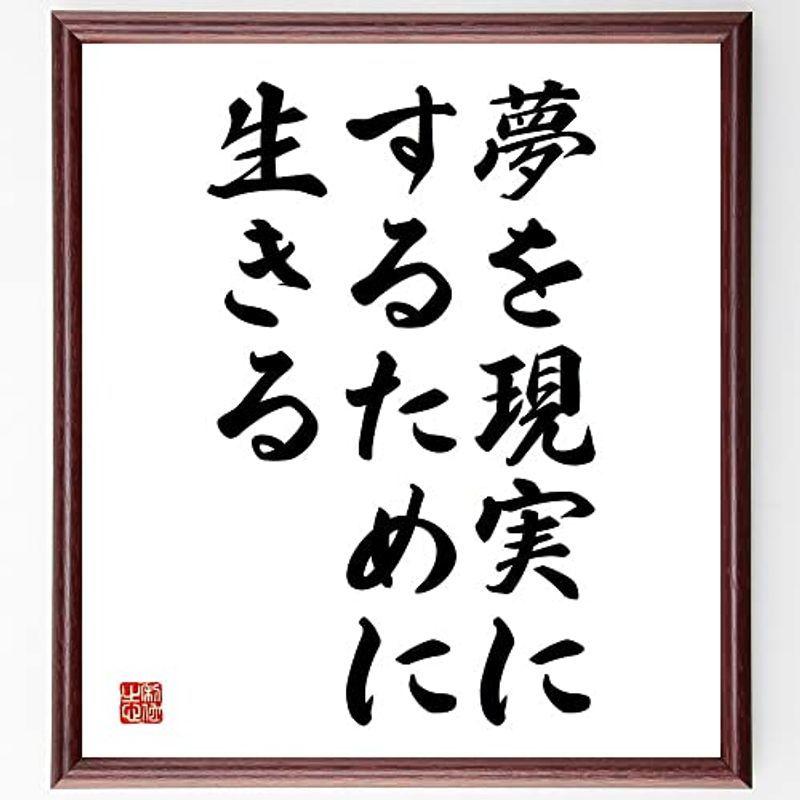 夢を現実に
するために
生きる